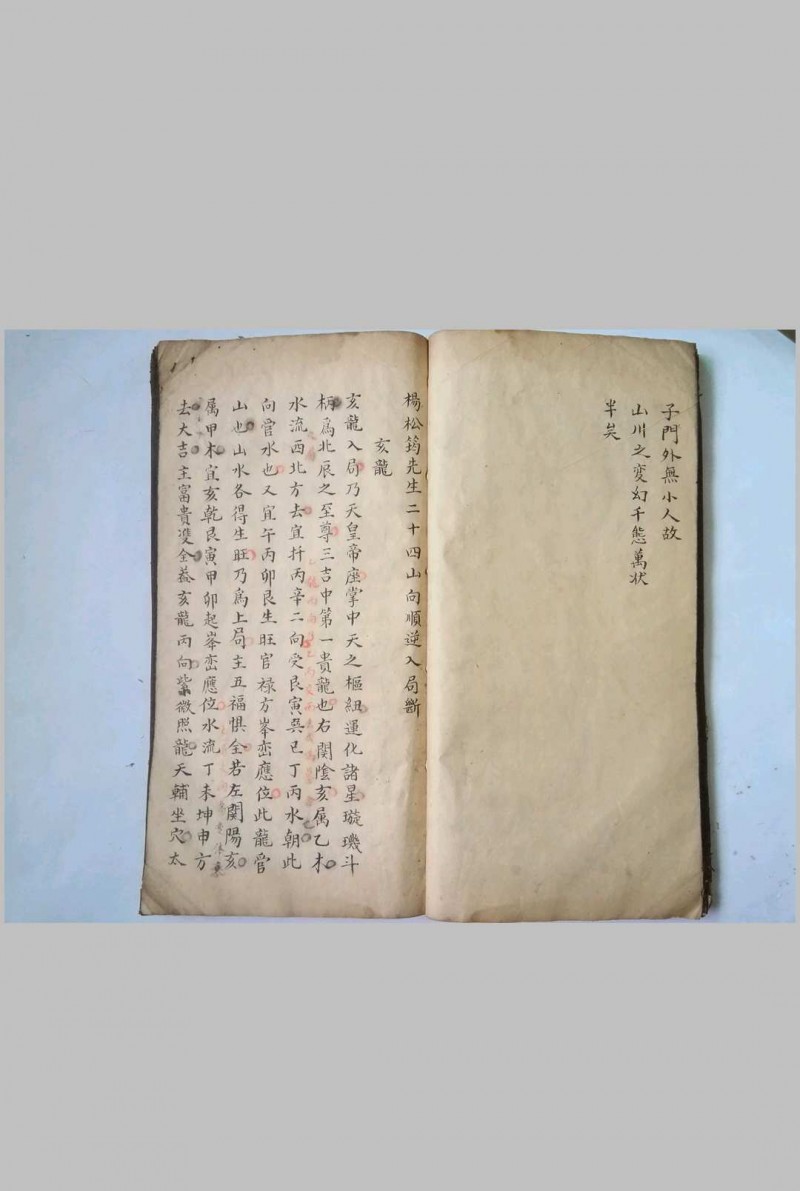 子門外無小人故
山川之変幻千態萬状
半矣
楊松筠先生二十四山向順逆入局斷
亥龍
亥龍入局乃天皇帝座掌中天之樞紐運化諸星璇璣斗
柄爲北辰之至尊三吉中第一貴龍也右関陰亥属乙木
水流西北方去宜扦丙辛二向受艮寅巽巳丁丙水朝此
向官水也又宜午丙卯艮生旺官禄方峯巒應位此龍官
山也山水各得生旺乃爲上局主五福惧全若左関陽亥
属甲木宜亥乾艮寅甲卯起峯巒應位水流丁未坤申方
去大吉主富貴雙全葢亥龍丙向紫微照龍天輔坐穴太